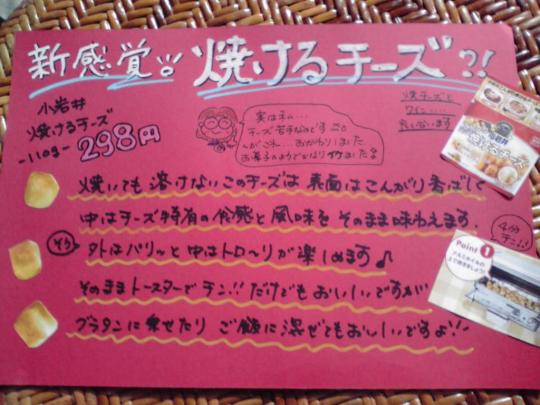 新感覚 焼けるチーズ?!
小岩井
焼けるチーズ
-110g-
298円
実はネム…
チーズ苦手なのです
がこれ…おかわりしました
お菓子のようでかなり
焼チーズと
ワイン…
焼いても溶けないこのチーズは 表面はこんがり香ばしく
中はチーズ特有の食感と風味を そのまま味わえます。
外はパリッと中はトロ〜リが楽しめます♪
そのままトースターでチン!!だけでもおいしいですが
グラタンに乗せたり ご飯に混ぜてもおいしいですよ!!
4分
チン♪♪
Point 1
アルミホイルの
上で焼きましょう!